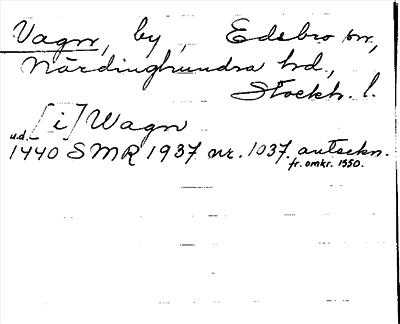 Vagn, by Edsbro sn,
Närdinghundra hd.,
Stockh. l.
[i] Wagn
u.d. 1440 SMR 1937 nr. 1037. anteckn.
fr. omkr. 1550.